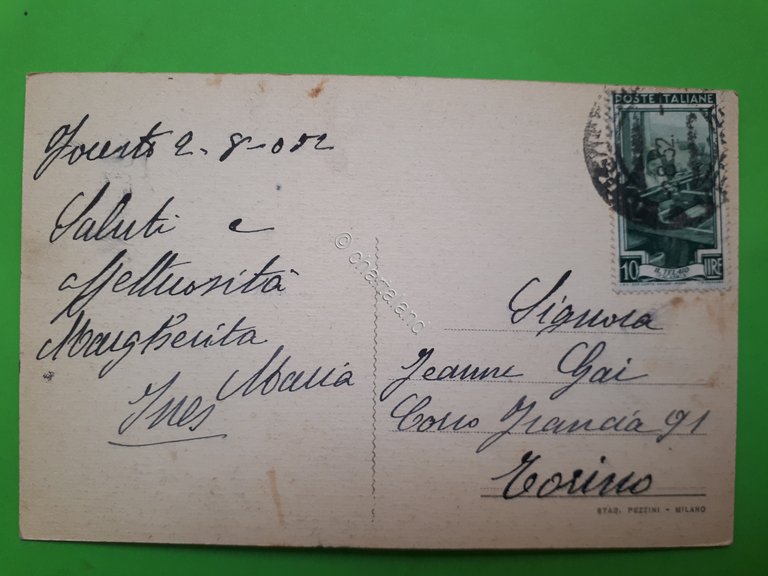 2-8-
Saluti e
affettuosità
Margherita
Maria
Ines
© chartaland
POSTE ITALIANE
52
10 IL TELAIO LIRE
Signora
Jeanne Gai
Corso Francia 91
Torino
STAB. PEZZINI - MILANO